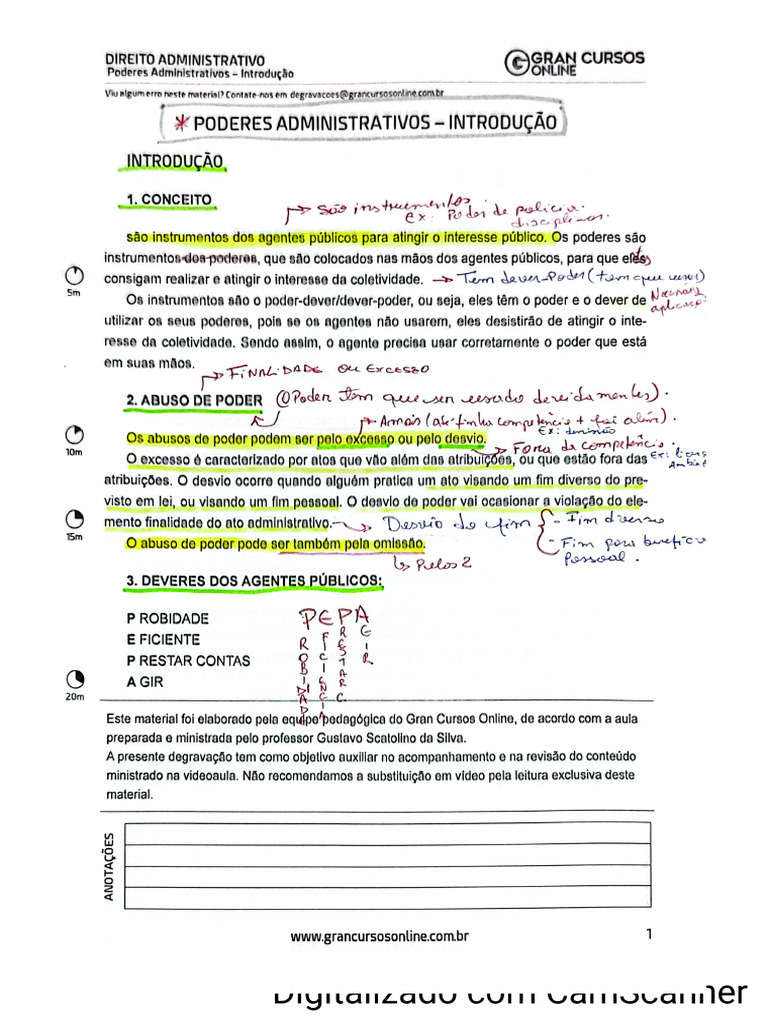 DIREITO ADMINISTRATIVO
Poderes Administrativos – Introdução
GRAN CURSOS
ONLINE
Viu algum erro neste material? Contate-nos em: degravacoes@grancursosonline.com.br
* PODERES ADMINISTRATIVOS – INTRODUÇÃO
INTRODUÇÃO
1. CONCEITO
São instrumentos
Ex: Poder de polícia
disciplinar.
são instrumentos dos agentes públicos para atingir o interesse público. Os poderes são
instrumentos dos poderes, que são colocados nas mãos dos agentes públicos, para que eles
consigam realizar e atingir o interesse da coletividade. → Tem dever-Poder (tem que usar)
5m
Os instrumentos são o poder-dever/dever-poder, ou seja, eles têm o poder e o dever de
utilizar os seus poderes, pois se os agentes não usarem, eles desistirão de atingir o inte-
resse da coletividade. Sendo assim, o agente precisa usar corretamente o poder que está
em suas mãos.
FINALIDADE OU EXCESSO
2. ABUSO DE PODER (O Poder tem que ser usado devidamentes).
A mais (até tinha competência + foi além).
Os abusos de poder podem ser pelo excesso ou pelo desvio.
10m
Ex: demissão
Fora da competência.
O excesso é caracterizado por atos que vão além das atribuições, ou que estão fora das
atribuições. O desvio ocorre quando alguém pratica um ato visando um fim diverso do pre-
visto em lei, ou visando um fim pessoal. O desvio de poder vai ocasionar a violação do ele-
mento finalidade do ato administrativo. → Desvio de fim { - Fim diverso
15m
- Fim para benefício
Pessoal.
O abuso de poder pode ser também pela omissão.
↳ Pelos 2
3. DEVERES DOS AGENTES PÚBLICOS:
P ROBIDADE
E FICIENTE
P RESTAR CONTAS
A GIR
PEPA
ROBIDADE
FICIÊNCIA
RESTAR C.
GIR
20m
Este material foi elaborado pela equipe pedagógica do Gran Cursos Online, de acordo com a aula
preparada e ministrada pelo professor Gustavo Scatolino da Silva.
A presente degravação tem como objetivo auxiliar no acompanhamento e na revisão do conteúdo
ministrado na videoaula. Não recomendamos a substituição em vídeo pela leitura exclusiva deste
material.
ANOTAÇÕES
www.grancursosonline.com.br
1
Digitalizado com CamScanner